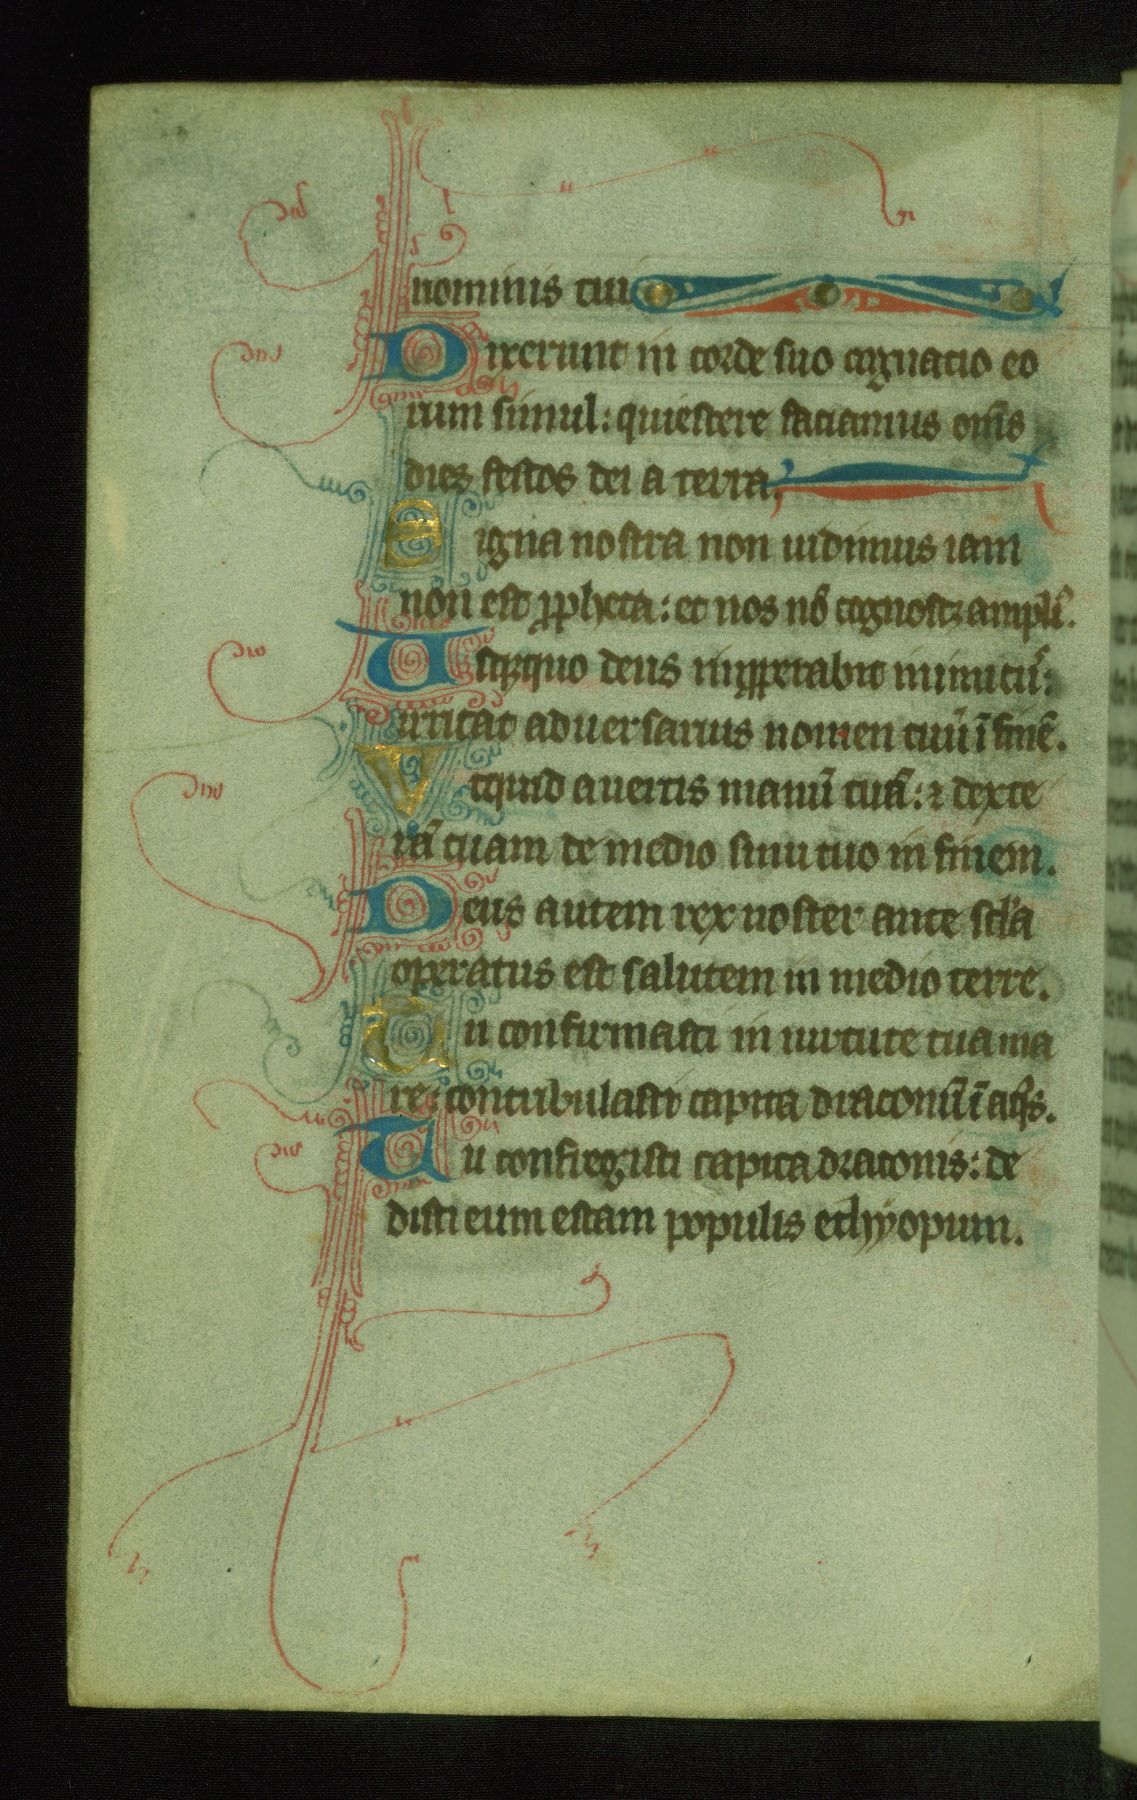 nominis tui
Dixerunt in corde suo cognatio eo
rum simul: quiescere faciamus om̄s
dies festos dei a terra.
Signa nostra non uidimus iam
non est ꝓpheta: et nos nō cognoscꝫ ampli᷒.
Usqꝫquo deus inꝓperabit inimicu᷒:
irritat aduersarius nomen tuū ī finē.
Vtquid auertis manū tuā: ⁊ dexte
rā tuam de medio sinu tuo in finem.
Deus autem rex noster ante scl̄a
operatus est salutem in medio terre.
Tu confirmasti in uirtute tua ma
re: contribulasti capita draconū ī aq̄s.
Tu confregisti capita draconis: de
disti eum escam populis ethyopum.